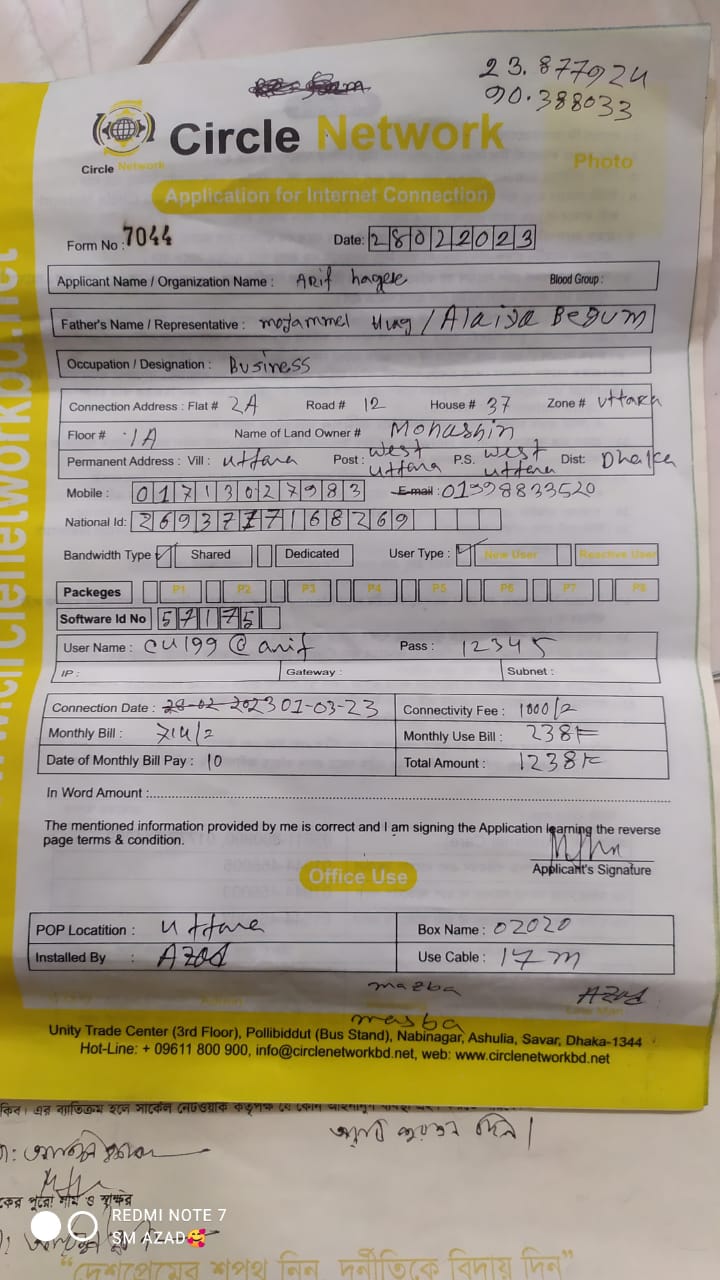 23.877924
90.388033
Circle Network
Circle Network
Photo
Application for Internet Connection
Form No : 7044 Date: 28022023
Applicant Name / Organization Name : Arif Blood Group :
Father's Name / Representative : / Alaiya Begum
Occupation / Designation : Business
Connection Address : Flat # 2A Road # 12 House # 37 Zone # Uttara
Floor # 1A Name of Land Owner # Mohashin
Permanent Address : Vill : Uttara Post : West Uttara P.S. West Uttara Dist: Dhaka
Mobile : 01713027983 E-mail :01998833520
National Id: 2693777168269
Bandwidth Type Shared Dedicated User Type : New User Reactive User
Packeges P1 P2 P3 P4 P5 P6 P7 P8
Software Id No 57175
User Name : CU199@arif Pass : 12345
IP : Gateway : Subnet :
Connection Date : 28-02-2023 01-03-23 Connectivity Fee : 1000/2
Monthly Bill : 714/2 Monthly Use Bill : 238
Date of Monthly Bill Pay : 10 Total Amount : 1238
In Word Amount :
The mentioned information provided by me is correct and I am signing the Application learning the reverse
page terms & condition.
Applicant's Signature
Office Use
POP Locatition : Uttara Box Name : 02020
Installed By : Azad Use Cable : 17 m
mazba Azad
masba Line Man
Unity Trade Center (3rd Floor), Pollibiddut (Bus Stand), Nabinagar, Ashulia, Savar, Dhaka-1344
Hot-Line: + 09611 800 900, info@circlenetworkbd.net, web: www.circlenetworkbd.net
www.circlenetworkbd.net
কের পুরো নাম ও স্বাক্ষর
REDMI NOTE 7
SM AZAD🥰
“দেশপ্রেমের শপথ নিন, দুর্নীতিকে বিদায় দিন”